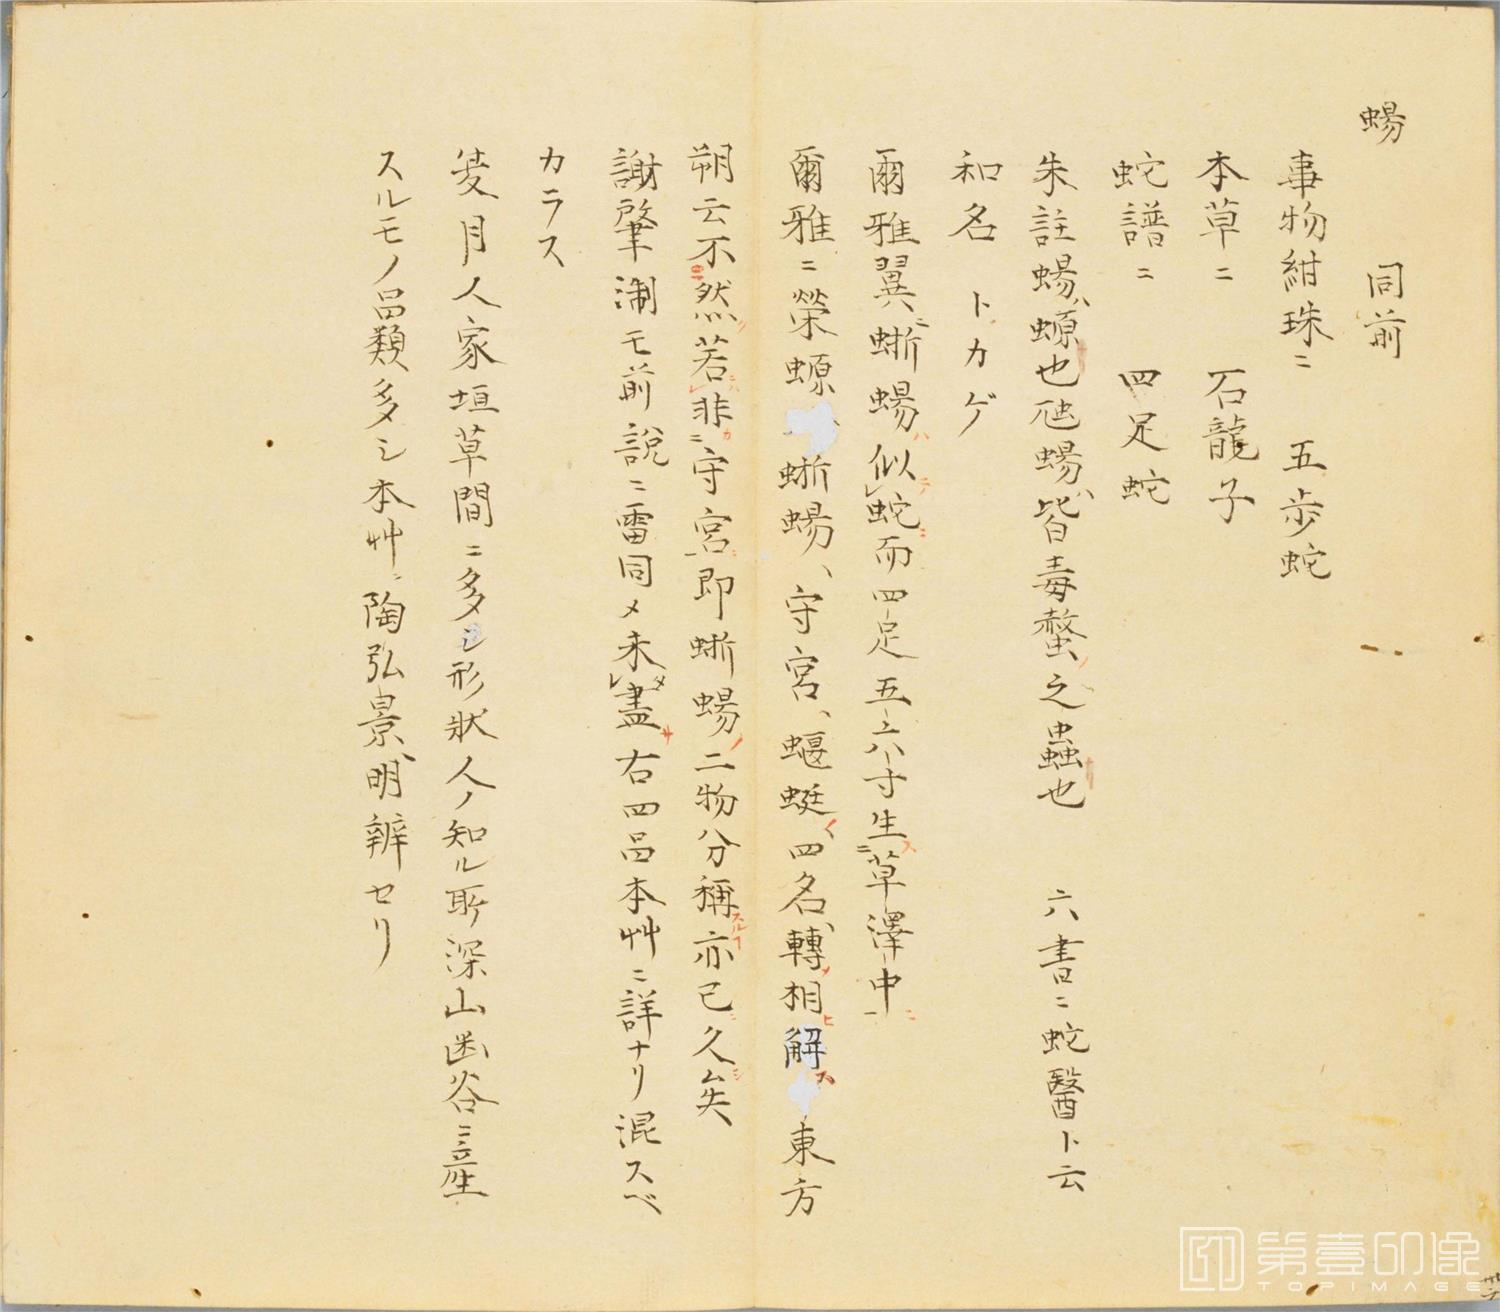 蜴　同前
事物紺珠ニ　五歩蛇
本草ニ　石龍子
蛇譜ニ　四足蛇
朱註蜴ハ螈也虺蜴ハ皆毒螫ノ之蟲也　六書ニ蛇醫ト云
和名　トカゲ
爾雅翼ニ蜥蜴ハ似テレ蛇ニ而四足五六寸生ス二草澤中ニ一
爾雅ニ榮螈、蜥蜴、守宮、蝘蜓ノ四名、轉メ相ヒ解ス東方
朔云不然ノ若ハレ非カ二守宮ニ一即蜥蜴ノ二物分稱スルヿ亦已ニ久シ矣
謝肇淛モ前說ニ雷同メ未タレ盡サ右四品本艸ニ詳ナリ混スベ
カラス
夌月人家垣草間ニ多シ形狀人ノ知ル所深山幽谷ニ產
スルモノ品類多シ本艸ニ陶弘景、明辨セリ
第壹印像
TOPIMAGE